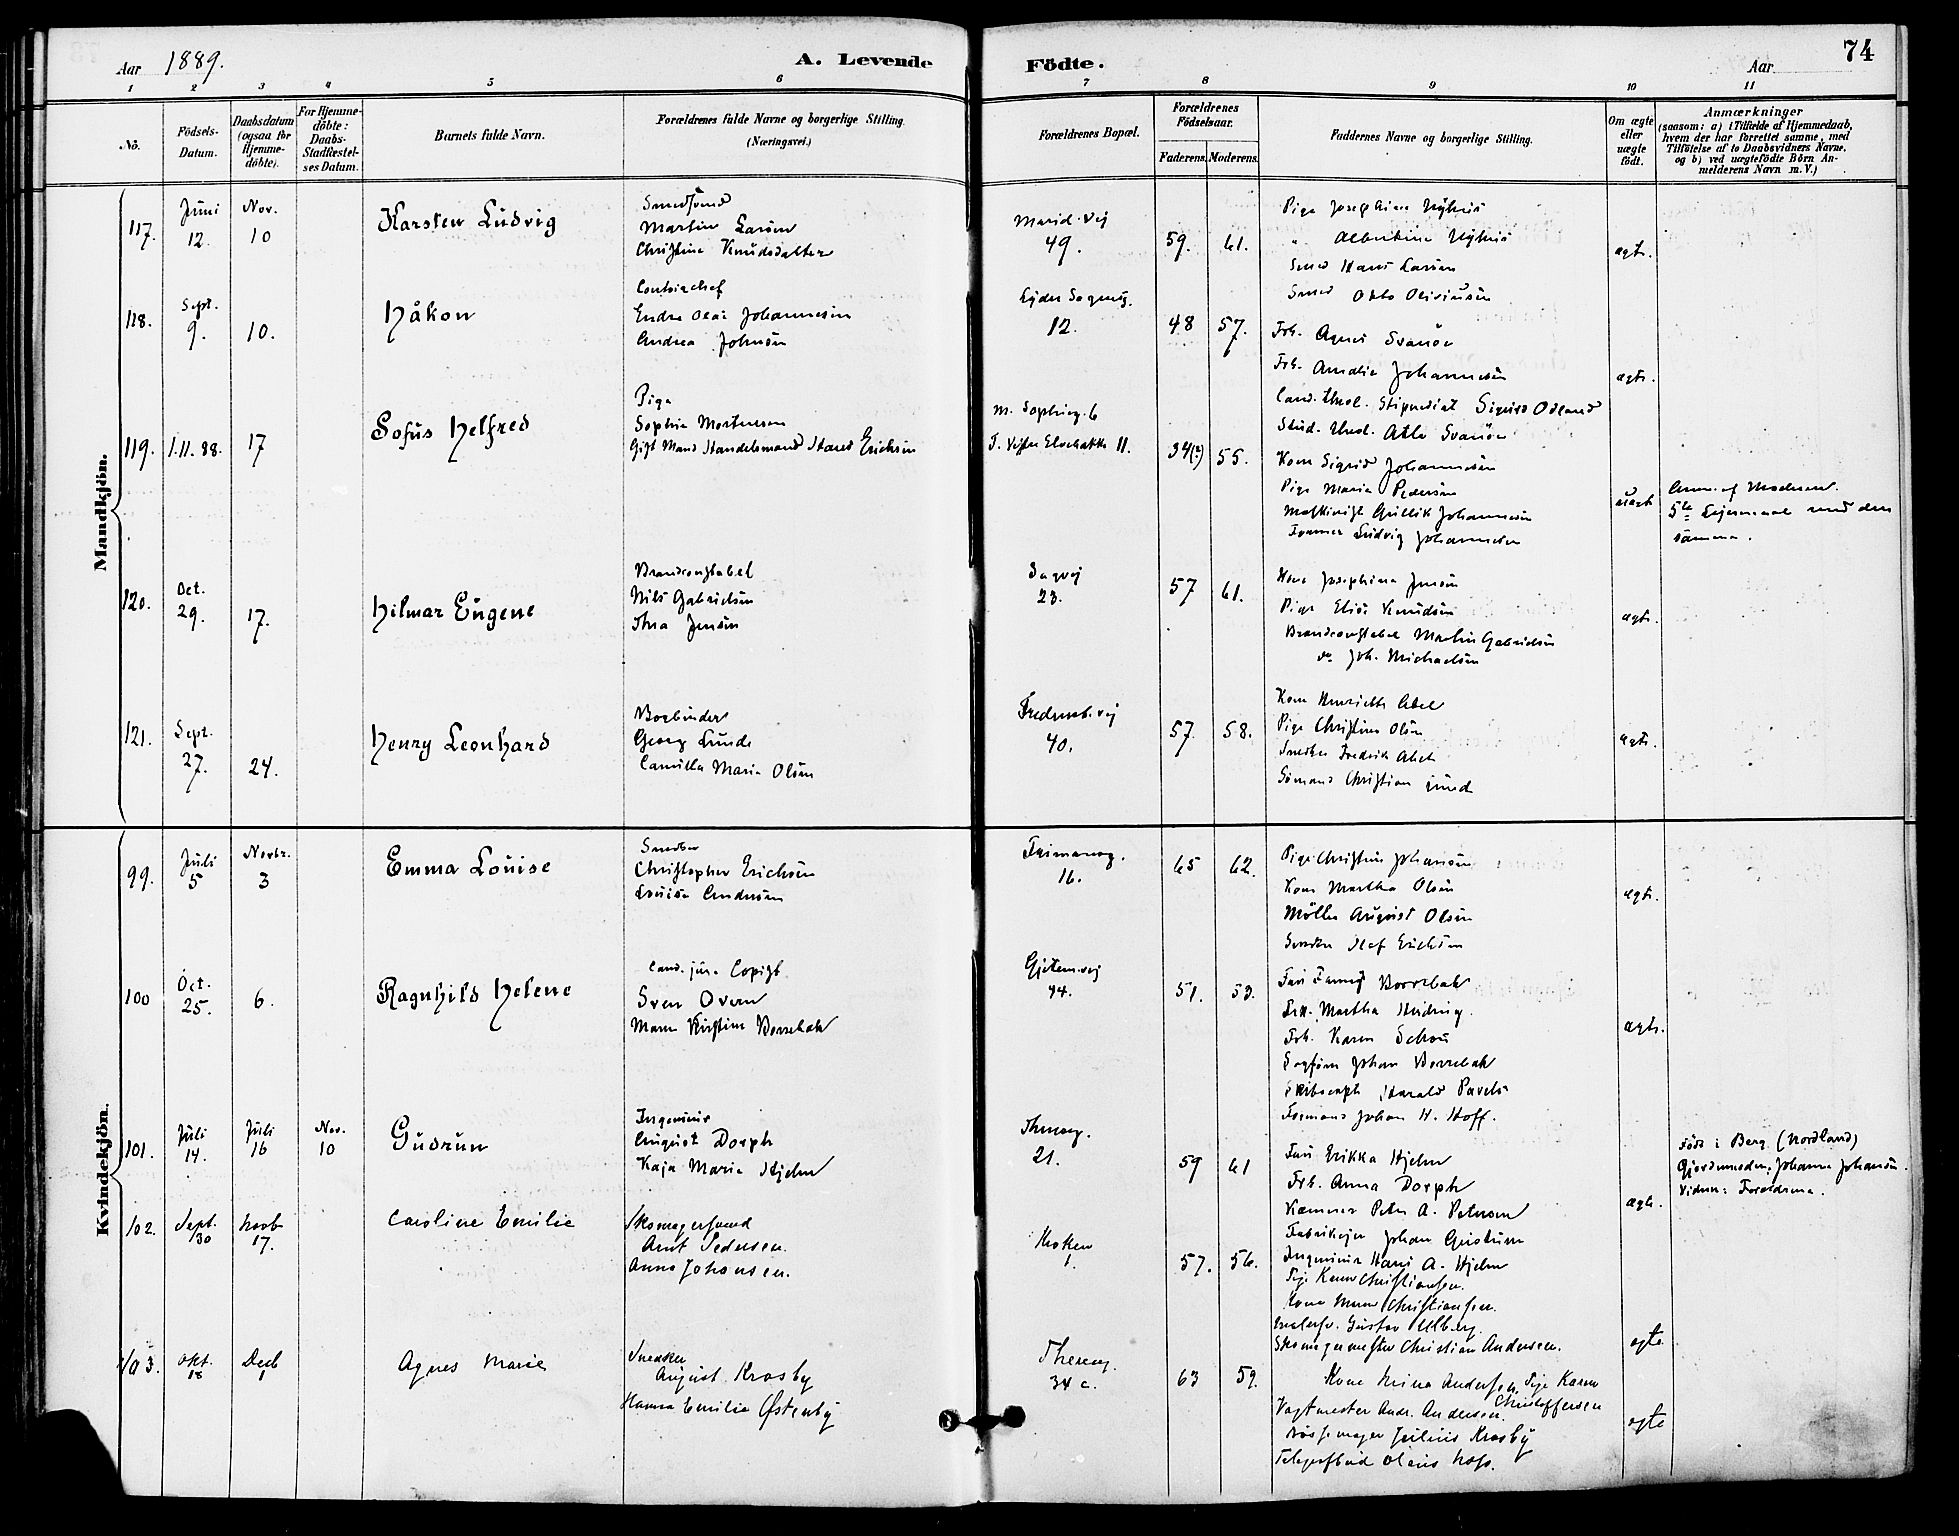 Aar 1889.
A. Levende
Födte.
Aar
74
1 2 3 4 5 6 7 8 9 10 11
Nö.
Födsels-
Datum.
Daabsdatum
(ogsaa for
Hjemme-
döbte).
For Hjemme-
döbte:
Daabs-
Stadfæstel-
ses Datum.
Barnets fulde Navn.
Forældrenes fulde Navne og borgerlige Stilling.
(Næringsvei.)
Forældrenes Bopæl.
Forældrenes
Födselsaar.
Faderens. Moderens.
Faddernes Navne og borgerlige Stilling.
Om ægte
eller
uægte
födt.
Anmærkninger
(saasom: a) i Tilfælde af Hjemmedaab,
hvem der har forrettet samme, med
Tilföielse af to Daabsvidners Navne,
og b) ved uægtefödte Börn An-
melderens Navn m. V.)
Mandkjön.
117.
Juni
12.
Nov.
10
Karsten Ludvig
Smedsvend
Martin Larsen
Christine Knudsdatter
Marid. vej
49.
59. 61.
Pige Josephine
" Albertine
Smed Hans Larsen
Smed Otto Oliviusen
ægte.
118.
Sept.
9.
10.
Håkon
Contorchef
Endre Olai Johannesen
Andrea Johnsen
12.
48 57.
Frk. Agnes Svanöe
Frk. Amalie Johannesen
Cand. theol. Stipendiat Sigurd Odland
Stud. theol. Atle Svanöe
ægte.
119.
1.11.88.
17
Sofus Helfred
Pige
Sophie Mortensen
Gift Mand Handelsmand Hans Erichsen
M. Sophieg. 6
F. Vestre Elvebakke 11.
34(?) 55.
Kone Sigrid Johannesen
Pige Maria Pedersen
Maskinist Gullik Johannesen
Former Ludvig Johannesen
uægte
Anm. af Moderen.
5te Leiermaal med den
samme.
120.
Oct.
29.
17.
Hilmar Eugene
Brandconstabel
Nils Gabrielsen
Thea Jensen
Sagvej
23.
57 61.
Kone Josephine Jensen
Pige Elise Knudsen
Brandconstabel Martin Gabrielsen
do Joh. Michaelsen
ægte.
121.
Sept.
27.
24.
Henry Leonhard
Bogbinder
Georg Lunde
Camilla Maria Olsen
Fredensb.vej
40.
57. 58.
Kone Henriette Abel
Pige Christine Olsen
Snedker Fredrik Abel
Sömand Christian Lund
ægte.
Kvindekjön.
99.
Juli
5
Novbr.
3
Emma Louise
Snedker
Christopher Erichsen
Louise Andersen
Frimansg.
16.
65 62.
Pige Christine Johansen
Kone Martha Olsen
Möller August Olsen
Snedker Olaf Erichsen
ægte.
100
Oct.
25.
6.
Ragnhild Helene
Cand. jur. Copist
Sven Oven
Maren Kirstine Borrebæk
Gjetem.vej
14.
51. 53.
Fru Fanny Borrebæk
Frk. Martha Heiding.
Frk. Karen Schou
Sagförer Johan Borrebæk
Skibscapt. Harald Pavels
Formand Johan H. Hoff.
ægte.
101.
Juli
14.
Juli
16
Nov.
10
Gudrun
Ingeniör
August Dorph
Kaja Marie Hjelm
Thereseg.
21.
59 61
Fru Erikka Hjelm
Frk. Anna Dorph
Kæmner Peter A. Petersen
Fabrikejer Johan
Ingeniör Hans A. Hjelm
ægte.
Född i Berg (Nordland)
Gjordemoder, Johanne Johansen.
Vidner: Forældrene.
102.
Sept.
30
Novb
17.
Caroline Emilie
Skomagersvend
Arnt Pedersen.
Anna Johansen.
Kroken
1.
57. 56.
Pige Karen Christiansen.
Kone Maren Christiansen.
Malersv. Gustav Ulberg.
Skomagermester Christian Andersen.
ægte
103.
Okt.
18
Decb
1
Agnes Marie
Snedker
August Krosby
Hanna Emilie Østenby
Thereseg.
34 c.
63 59.
Kone Mina Andersen. Pige Karen
Christoffersen
Vagtmester Andr. Andersen.
Börsemager Julius Krosby
Telegrafbud Olaus
ægte